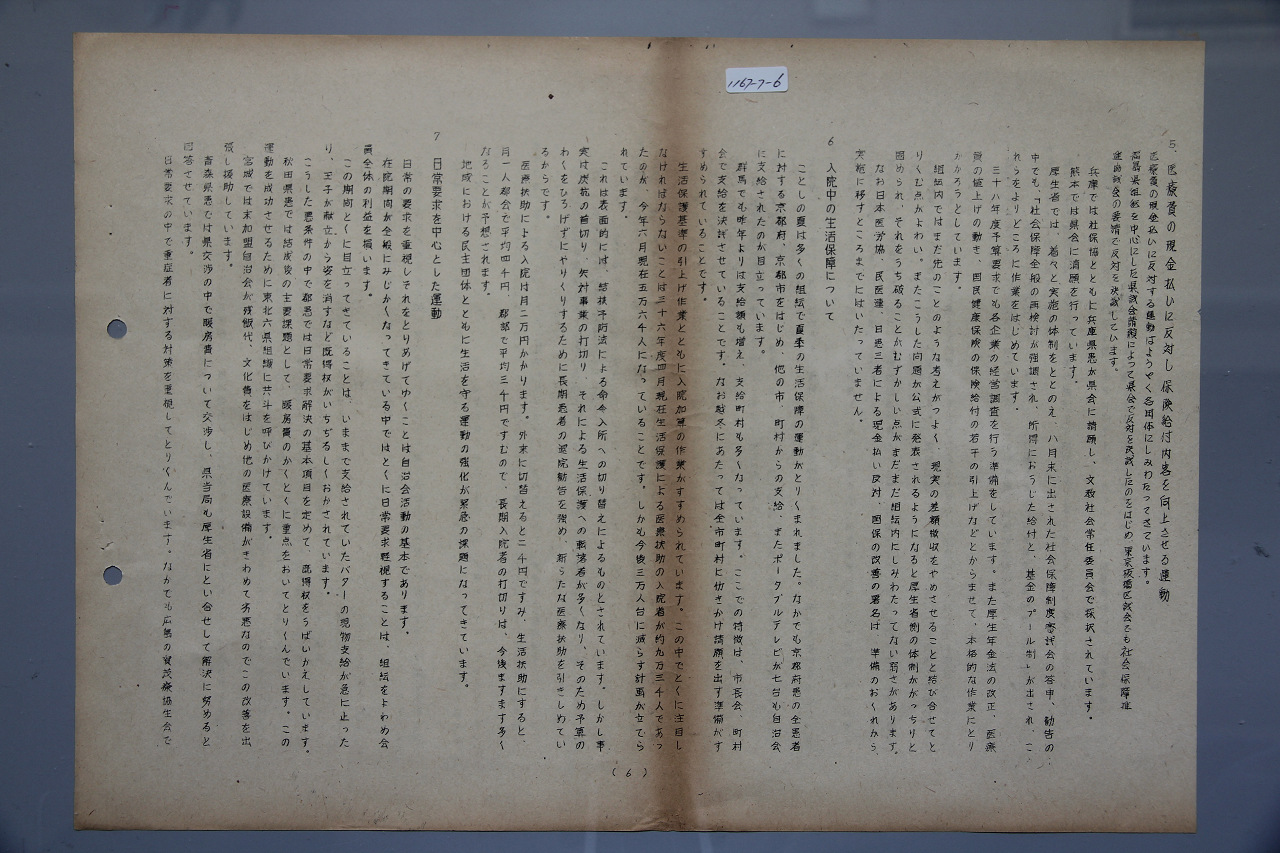 1167-7-6
5、医療費の現金払いに反対し保険給付内容を向上させる運動
医療費の現金払いに反対する運動はようやく各団体にしみわたってきています。
福島県組部を中心にした県議会請願によって県会で反対を決議したのをはじめ、東京板橋区議会でも社会保障推
進両議会の要請で反対を決議しています。
兵庫では社保協とともに兵庫県患が県会に請願し、文教社会常任委員会で採択されています。
熊本では県会に請願を行っています。
厚生省では、着々と実施の体制をととのえ、八月末に出された社会保障制度審議会の答申、勧告の
中でも、「社会保障全般の再検討が強調され、所得におうじた給付と、基金のプール制」が出され、こ
れらをよりどころに作業をはじめています。
三十八年度予算要求でも各企業の経営調査を行う準備をしています。また厚生年金法の改正、医療
費の値上げの動き、国民健康保険の保険給付の若干の引上げなどとからませて、本格的な作業にとり
かかろうとしています。
組織内ではまだ先のことのような考えがつよく、現実の差額徴収をやめさせることと結び合せてと
りくむ点がよわい。またこうした問題が公式に発表されるようになると厚生省側の体制ががっちりと
固められ、それをうち破ることがむずかしい点がまだまだ組織内にしみわたってない弱さがあります。
なお日本医労協、民医連、日患三者による現金払い反対、国保の改善の署名は、準備のおくれから、
実施に移すところまでにはいたっていません。
6 入院中の生活保障について
ことしの夏は多くの組織で夏季の生活保障の運動がとりくまれました。なかでも京都府患の全患者
に対する京都府、京都市をはじめ、他の市、町村からの支給、またポータブルテレビが七台も自治会
に支給されたのが目立っています。
群馬でも昨年よりは支給額も増え、支給町村も多くなっています。ここでの特徴は、市長会、町村
会で支給を決議させていることです。なお越冬にあたっては全市町村に働きかけ請願を出す準備がす
すめられていることです。
生活保護基準の引上げ作業とともに入院加算の作業がすすめられています。この中でとくに注目し
なければならないことは三十六年度四月現在生活保護による医療扶助の入院者が約九万三千人であっ
たのが、今年六月現在五万六千人になっていることです。しかも今後三万人台に減らす計画が立てら
れています。
これは表面的には、結核予防法による命令入所への切り替えによるものとされています。しかし事
実は炭坑の首切り、失対事業の打切り、それによる生活保護への転落者が多くなり、そのため予算の
わくをひろげずにやりくりするために長期患者の退院勧告を強め、新らたな医療扶助を引きしめてい
るからです。
医療扶助による入院は月二万円かかります。外来に切替えると二千円ですみ、生活扶助にすると、
月一人都会で平均四千円、郡部で平均三千円ですむので、長期入院者の打切りは、今後ますます多く
なることが予想されます。
地域における民主団体とともに生活を守る運動の強化が緊急の課題になってきています。
7 日常要求を中心とした運動
日常の要求を重視しそれをとりあげてゆくことは自治会活動の基本であります。
在院期間が全般にみじかくなってきている中ではとくに日常要求軽視することは、組織をよわめ会
員全体の利益を損います。
この期間とくに目立ってきていることは、いままで支給されていたバターの現物支給が急に止った
り、玉子が献立から姿を消すなど既得権がいちぢるしくおかされています。
こうした悪条件の中で都患では日常要求解決の基本項目を定めて、既得権をうばいかえしています。
秋田県患では結成後の主要課題として、暖房費のかくとくに重点をおいてとりくんでいます。この
運動を成功させるために東北六県組織に共斗を呼びかけています。
宮城では未加盟自治会が残飯代、文化費をはじめ他の医療設備がきわめて劣悪なのでこの改善を出
張し援助しています。
青森県患では県交渉の中で暖房費について交渉し、県当局も厚生省にとい合せして解決に努めると
回答させています。
日常要求の中で重症者に対する対策を重視してとりくんでいます。なかでも広島の賀茂療協生会で
(6)